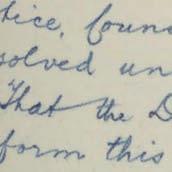 tice, foun
solved un
That the D
form this